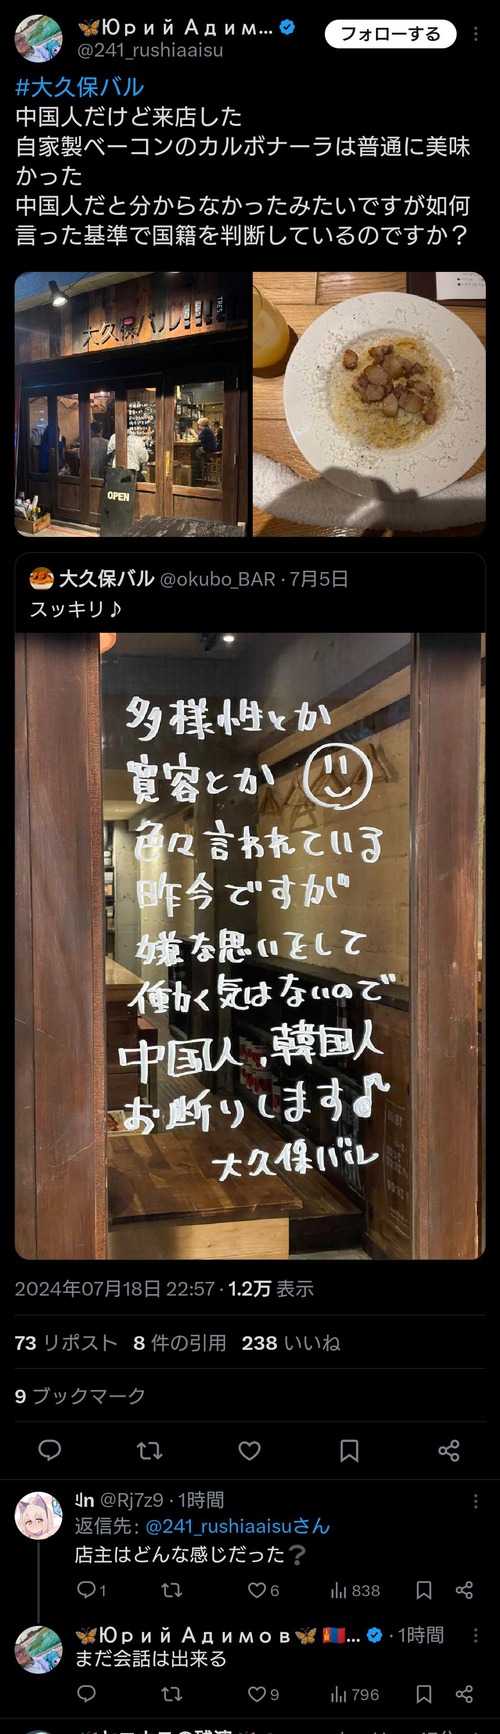 🦋Юрий Адим...
フォローする
@241_rushiaaisu
#大久保バル
中国人だけど来店した
自家製ベーコンのカルボナーラは普通に美味
かった
中国人だと分からなかったみたいですが如何
言った基準で国籍を判断しているのですか？
大久保バル
TRES
OPEN
大久保バル @okubo_BAR · 7月5日
スッキリ♪
多様性とか
寛容とか
色々言われている
昨今ですが
嫌な思いをして
働く気はないので
中国人、韓国人
お断りします♪
大久保バル
2024年07月18日 22:57 · 1.2万 表示
73 リポスト 8 件の引用 238 いいね
9 ブックマーク
@Rj7z9 · 1時間
返信先: @241_rushiaaisuさん
店主はどんな感じだった❔
1 6 838
🦋Юрий Адимов🦋🇲🇳... · 1時間
まだ会話は出来る
9 796